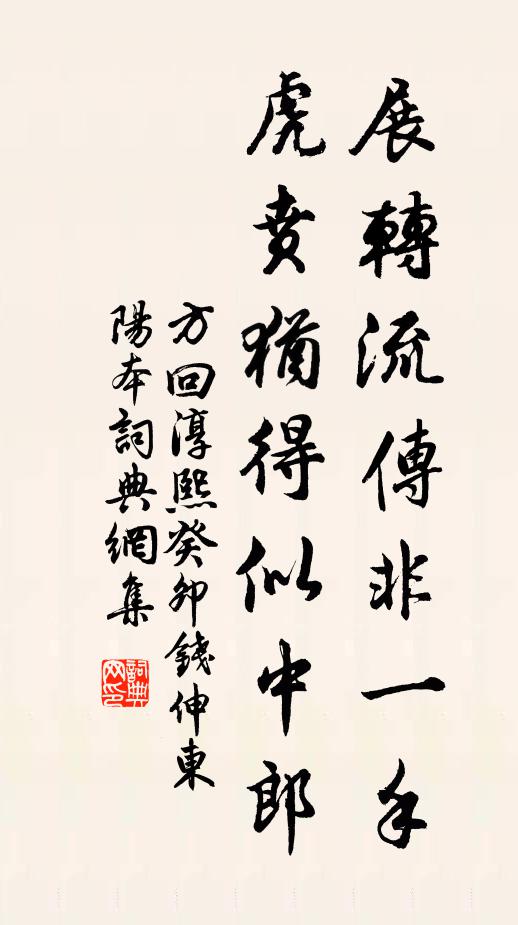 展轉流傳非一手
虎賁猶得似中郎
方回淳熙癸卯錢伸東
陽本詞典網集
詞典网印